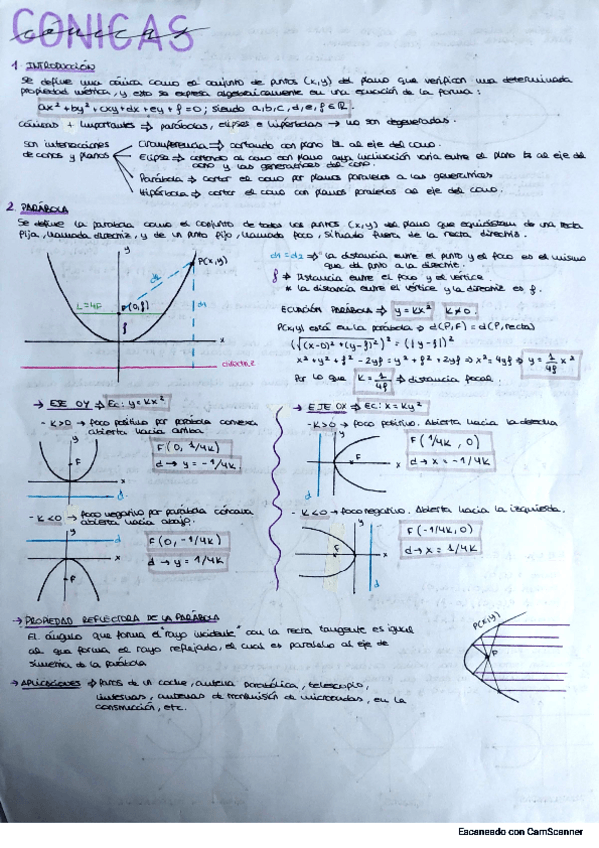 CONICAS
conicas
1. INTRODUCCIÓN
Se define una cónica como el conjunto de puntos (x,y) del plano que verifican una determinada
propiedad métrica, y esto se expresa algebraicamente en una ecuación de la forma:
ax² + by² + cxy + dx + ey + f = 0; siendo a, b, c, d, e, f ∈ ℝ.
cónicas + importantes ⇒ parábolas, elipses e hipérbolas → no son degeneradas.
Son intersecciones
de conos y planos
Circunferencia ⇒ cortando con plano al eje del cono.
Elipse ⇒ cortando al cono con plano cuya inclinación varía entre el plano al eje del
cono y las generatrices del cono.
Parábola ⇒ cortar el cono por planos paralelos a las generatrices
Hipérbola ⇒ cortar el cono con planos paralelos al eje del cono.
2. PARÁBOLA
Se define la parábola como el conjunto de todos los puntos (x,y) del plano que equidistan de una recta
fija, llamada directriz, y de un punto fijo, llamado foco, situado fuera de la recta directriz.
y
P(x,y)
d2
d1
L=4F
F(0,f)
f
x
directriz
d1 = d2 ⇒ la distancia entre el punto y el foco es el mismo
que del punto a la directriz.
f ⇒ Distancia entre el foco y el vértice
* la distancia entre el vértice y la directriz es f.
ECUACIÓN PARÁBOLA ⇒ y = kx² k ≠ 0.
P(x,y) está en la parábola ⇒ d(P,F) = d(P, recta)
(√(x-0)² + (y-f)²)² = (|y-f|)²
x² + y² + f² - 2yf = y² + f² + 2yf ⇒ x² = 4yf ⇒ y = 1/4f x²
Por lo que K = 1/4f ⇒ distancia focal.
→ EJE OY ⇒ Ec: y = kx²
- K>0 → foco positivo por parábola convexa
abierta hacia arriba.
y
F
x
d
F(0, 1/4K)
d → y = -1/4K
- K<0 → foco negativo por parábola cóncava
abierta hacia abajo.
y
d
x
F
F(0, -1/4K)
d → y = 1/4K
→ EJE OX ⇒ Ec: x = ky²
- K>0 → foco positivo. Abierta hacia la derecha
y
F
x
d
F(1/4K, 0)
d → x = -1/4K
- K<0 → foco negativo. Abierta hacia la izquierda.
y
F
x
d
F(-1/4K, 0)
d → x = 1/4K
→ PROPIEDAD REFLECTORA DE LA PARÁBOLA
El ángulo que forma el "rayo incidente" con la recta tangente es igual
al que forma el rayo reflejado, el cual es paralelo al eje de
simetría de la parábola
P(x,y)
F
→ APLICACIONES ⇒ faros de un coche, antena parabólica, telescopio,
linternas, antenas de transmisión de microondas, en la
construcción, etc.
Escaneado con CamScanner